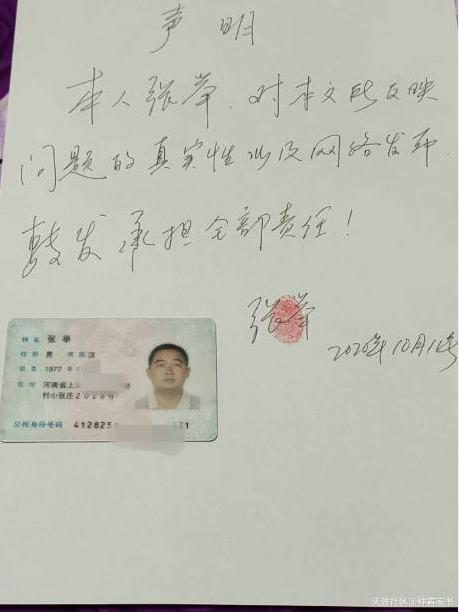 声明
本人张举,对本文所反映
问题的真实性以及网络发布.
转发承担全部责任!
张举
2020年10月1号
姓名 张举
性别 男 民族 汉
出生 1977年
住址 河南省上
村小张庄
公民身份号码 4128251
天涯社区@